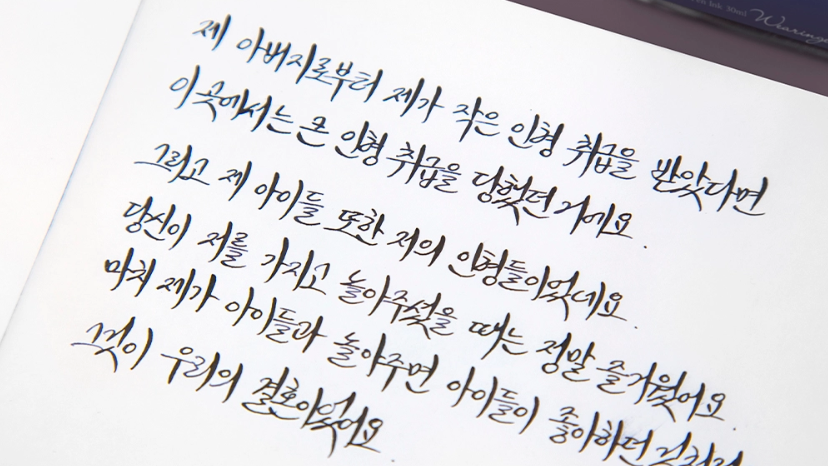 Ink 30ml
Wearinge
제 아버지로부터 제가 작은 인형 취급을 받았다면
이 곳에서는 큰 인형 취급을 당했던 거예요.
그리고 제 아이들 또한 저의 인형들이었네요.
당신이 저를 가지고 놀아주셨을 때는 정말 즐거웠어요.
마치 제가 아이들과 놀아주면 아이들이 좋아하던
그것이 우리의 결혼이었어요